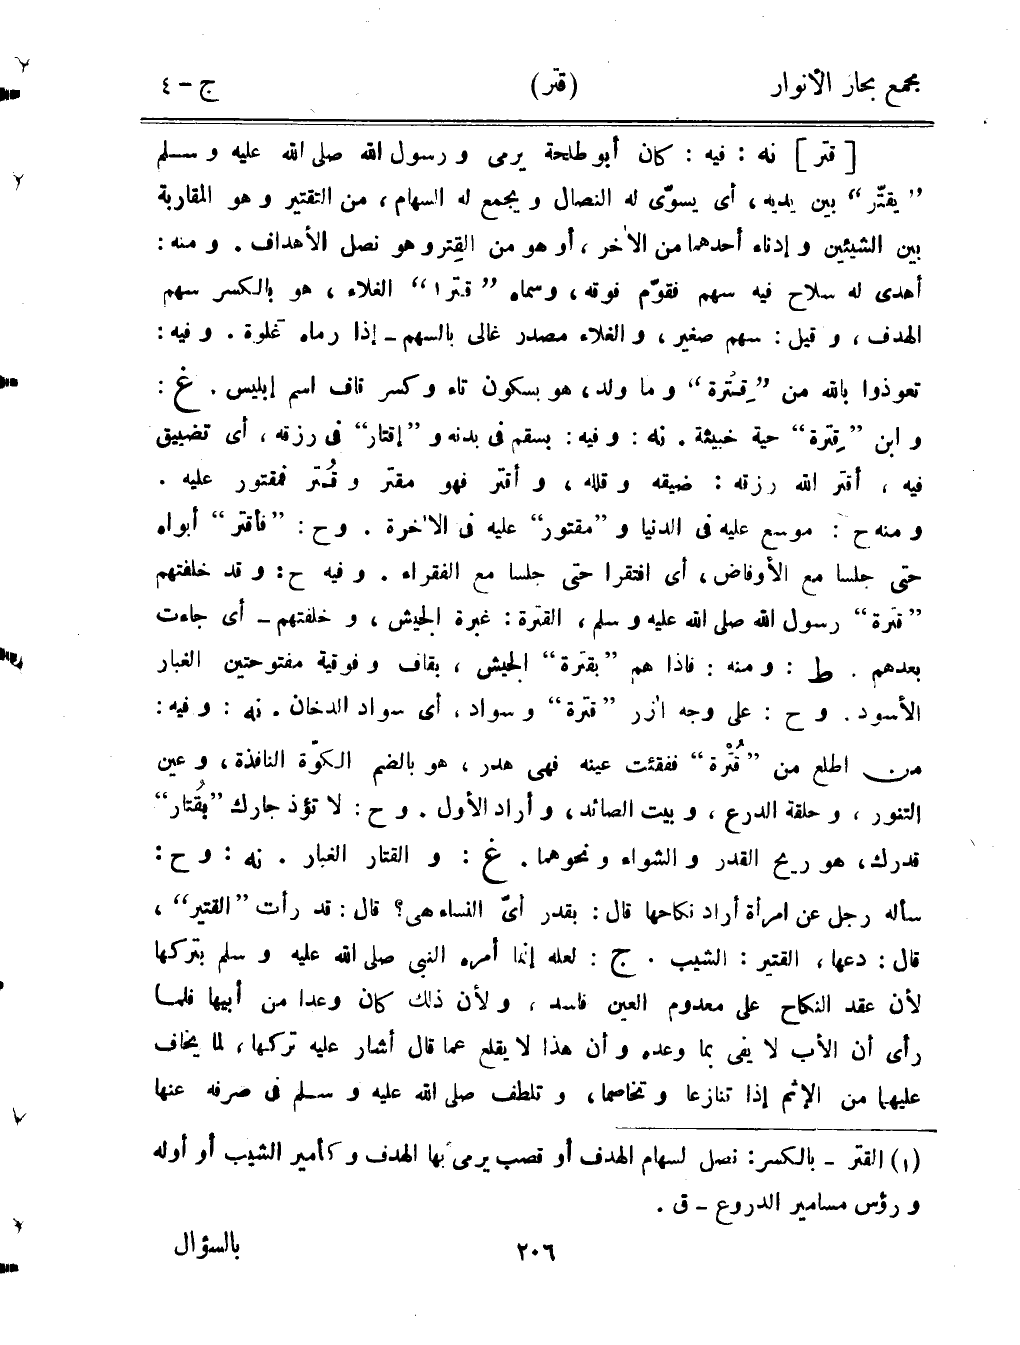 مجمع بحار الأنوار (قتر) ج – ٤
[ قتر ] نه : فيه : كان أبو طلحة يرمى و رسول الله صلى الله عليه و سلم
”يقتّر“ بين يديه ، أى يسوّى له النصال و يجمع له السهام ، من التقتير و هو المقاربة
بين الشيئين و إدناء أحدهما من الآخر ، أو هو من القِتر و هو نصل الأهداف . و منه :
أهدى له سلاح فيه سهم فقوّم فوقه ، و سماه ”قترا١“ الغلاء ، هو بالكسر سهم
الهدف ، و قيل : سهم صغير ، و الغلاء مصدر غالى بالسهم ـ إذا رماه غلوة . و فيه :
تعوذوا بالله من ”قِتْرة“ و ما ولد ، هو بسكون تاء و كسر قاف اسم إبليس . غ :
و ابن ”قِترة“ حية خبيثة . نه : و فيه : بسقم فى بدنه و ”إقتار“ فى رزقه ، أى تضييق
فيه ، أقتر الله رزقه : ضيقه و قلله ، و أقتر فهو مقتر و قُتر فمقتور عليه .
و منه ح : موسع عليه فى الدنيا و ”مقتور“ عليه فى الآخرة . و ح : ”فأقتر“ أبواه
حتى جلسا مع الأوفاض ، أى افتقرا حتى جلسا مع الفقراء . و فيه ح : و قد خلفتهم
”قترة“ رسول الله صلى الله عليه و سلم ، القترة : غبرة الجيش ، و خلفتهم ـ أى جاءت
بعدهم . ط : و منه : فاذا هم ”بقترة“ الجيش ، بقاف و فوقية مفتوحتين الغبار
الأسود . و ح : على وجه آزر ”قترة“ و سواد ، أى سواد الدخان . نه : و فيه :
من اطلع من ”قُتْرة“ ففقئت عينه فهى هدر ، هو بالضم الكوّة النافذة ، و عين
التنور ، و حلقة الدرع ، و بيت الصائد ، و أراد الأول . و ح : لا تؤذ جارك ”بقُتار“
قدرك ، هو ريح القدر و الشواء و نحوهما . غ : و القتار الغبار . نه : و ح :
سأله رجل عن امرأة أراد نكاحها قال : بقدر أىّ النساء هى؟ قال : قد رأت ”القتير“ ،
قال : دعها ، القتير : الشيب . ج : لعله إنما أمره النبى صلى الله عليه و سلم بتركها
لأن عقد النكاح على معدوم العين فاسد ، و لأن ذلك كان وعدا من أبيها فلما
رأى أن الأب لا يفى بما وعده و أن هذا لا يقلع عما قال أشار عليه تركها ، لما يخاف
عليهما من الإثم إذا تنازعا و تخاصما ، و تلطف صلى الله عليه و سلم فى صرفه عنها
(١) القتر ـ بالكسر : نصل لسهام الهدف أو قصب يرمى بها الهدف و كأمير الشيب أو أوله
و رؤس مسامير الدروع ـ ق .
٢٠٦ بالسؤال